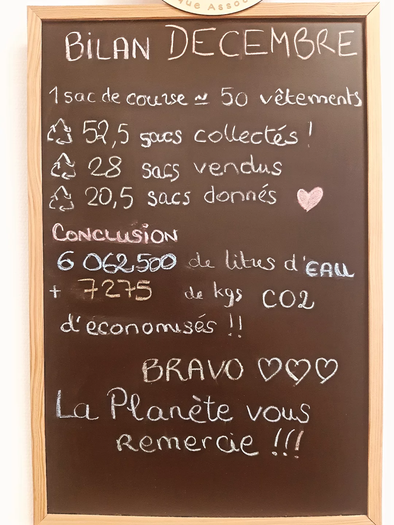 que Assou
BILAN DECEMBRE
1 sac de course ≃ 50 vêtements
52,5 sacs collectés !
28 sacs vendus
20,5 sacs donnés
CONCLUSION
6 062 500 de litres d'EAU
+ 7275 de kgs CO2
d'économisés !!
BRAVO ♡♡♡
La Planète vous
Remercie !!!